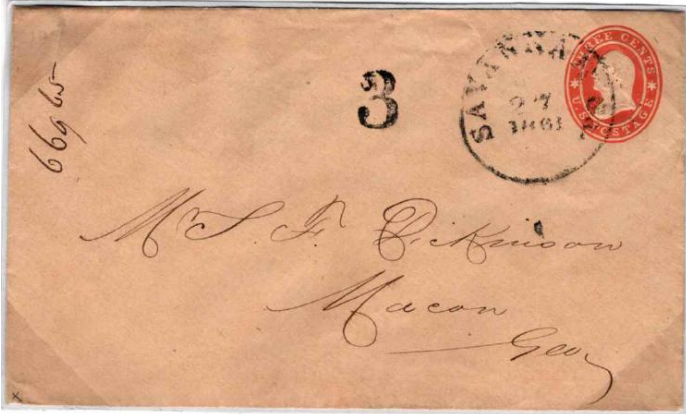 66965
3
SAVANNAH
27
1861
THREE CENTS
U.S. POSTAGE
Mr S. F. Dickinson
Macon
Geo
x